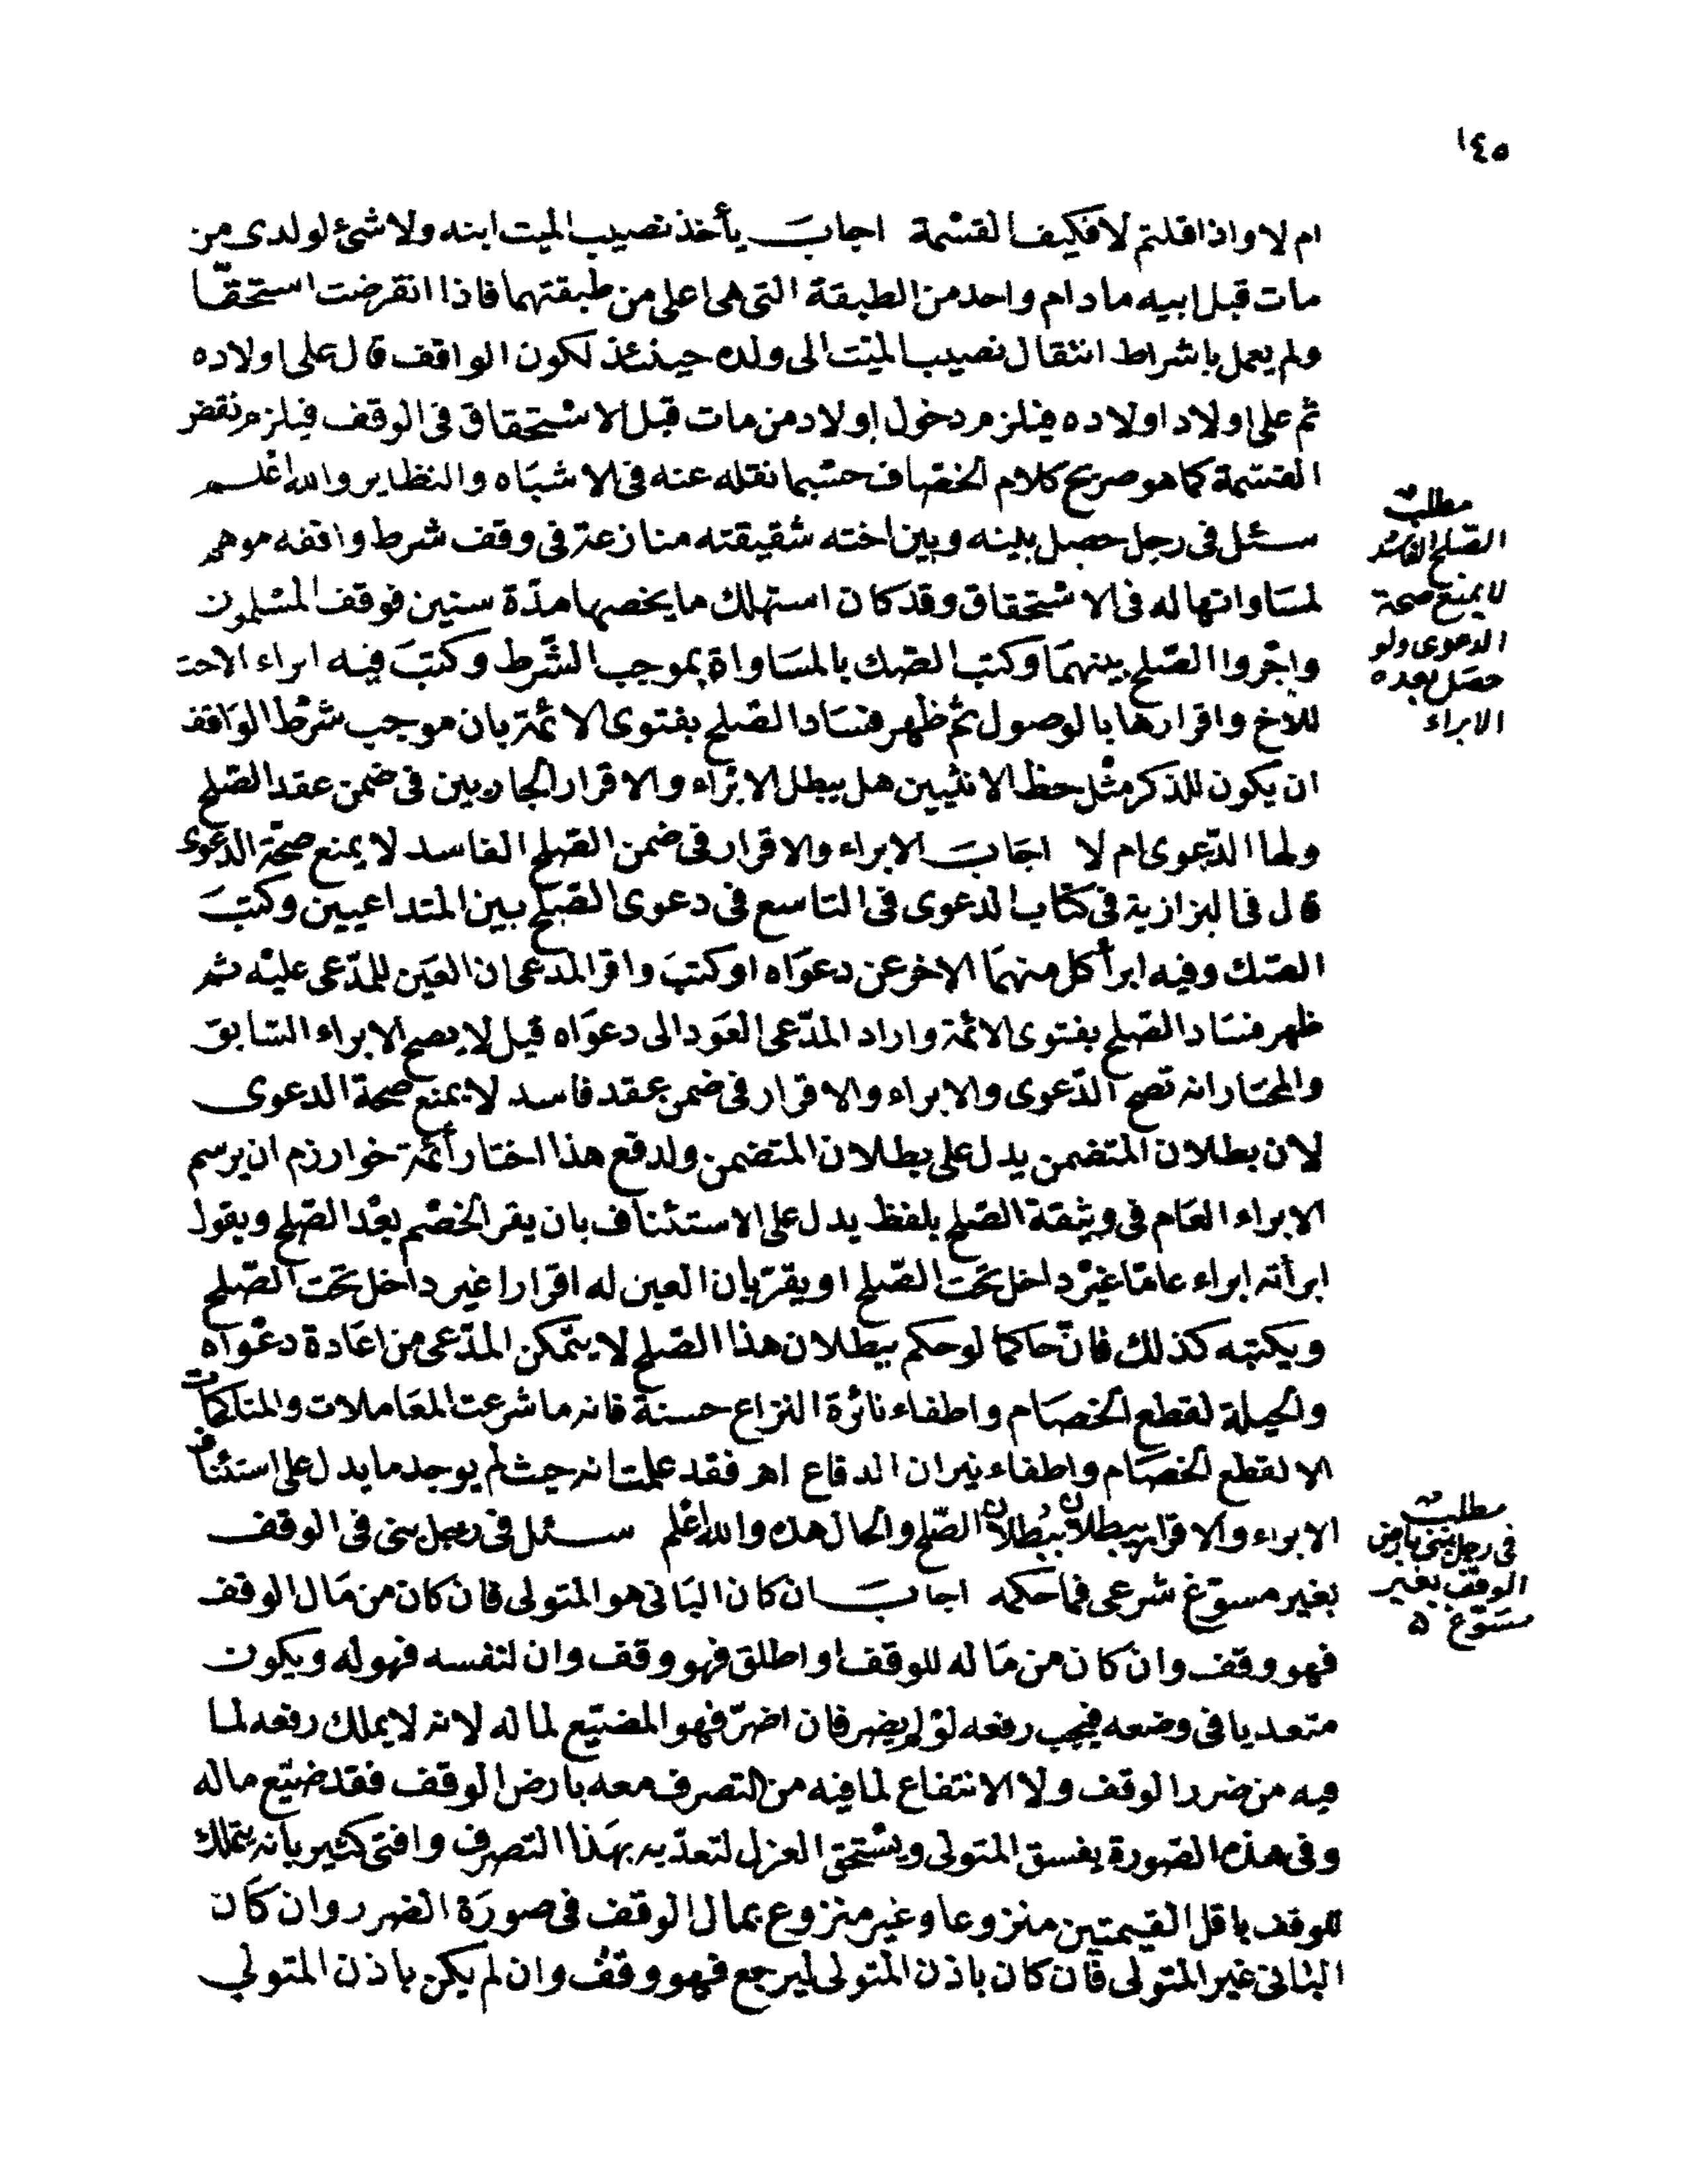 ١٤٥
ام لا واذا قلتم لا فكيف القسمة اجاب يأخذ نصيب الميت ابنه ولا شئ لولدى من
مات قبل ابيه ما دام واحد من الطبقة التى هى اعلى من طبقتهما فاذا انقرضت استحقا
ولم يعمل باشراط انتقال نصيب الميت الى ولده حينئذ لكون الواقف قال على اولاده
ثم على اولاد اولاده فيلزم دخول اولاد من مات قبل الاستحقاق فى الوقف فيلزم نقض
القسمة كما هو صريح كلام الخصاف حسبما نقله عنه فى الاشباه والنظاير والله اعلم
مطلب
الصلح الفاسد
لا يمنع صحة
الدعوى ولو
حصل بعده
الابراء
سئل فى رجل حصل بينه وبين اخته شقيقته منازعة فى وقف شرط واقفه موهم
لمساواتها له فى الاستحقاق وقد كان استهلك ما يخصها مدة سنين فوقف المسلمون
واجروا الصلح بينهما وكتب الصك بالمساواة بموجب الشرط وكتب فيه ابراء الاخت
للاخ واقرارها بالوصول ثم ظهر فساد الصلح بفتوى الائمة بان موجب شرط الواقف
ان يكون للذكر مثل حظ الانثيين هل يبطل الابراء والاقرار الجاريين فى ضمن عقد الصلح
ولها الدعوى ام لا اجاب الابراء والاقرار فى ضمن الصلح الفاسد لا يمنع صحة الدعوى
قال فى البزازية فى كتاب الدعوى فى التاسع فى دعوى الصلح بين المتداعيين وكتب
الصك وفيه ابرأ كل منهما الاخر عن دعواه او كتب واقر المدعى ان العين للمدعى عليه ثم
ظهر فساد الصلح بفتوى الائمة واراد المدعى العود الى دعواه قيل لا يصح الابراء السابق
والمختار انه تصح الدعوى والابراء والاقرار فى ضمن عقد فاسد لا يمنع صحة الدعوى
لان بطلان المتضمن يدل على بطلان المتضمن ولدفع هذا اختار أئمة خوارزم ان يرسم
الابراء العام فى وثيقة الصلح بلفظ يدل على الاستئناف بان يقر الخصم بعد الصلح ويقول
ابرأته ابراء عاما غير داخل تحت الصلح او يقر بان العين له اقرارا غير داخل تحت الصلح
ويكتبه كذلك فان حاكما لو حكم ببطلان هذا الصلح لا يتمكن المدعى من اعادة دعواه
والحيلة لقطع الخصام واطفاء نائرة النزاع حسنة فانه ما شرعت المعاملات والمناكحات
الا لقطع الخصام واطفاء نيران الدفاع اهـ فقد علمت انه حيث لم يوجد ما يدل على استئناف
الابراء والاقرار يبطلان ببطلان الصلح والحال هذه والله اعلم سئل فى رجل بنى فى الوقف
مطلب
فى رجل بنى بارض
الوقف بغير
مسوّغ
بغير مسوّغ شرعى فما حكمه اجاب ان كان البانى هو المتولى فان كان من مال الوقف
فهو وقف وان كان من ماله للوقف او اطلق فهو وقف وان لنفسه فهو له ويكون
متعديا فى وضعه فيجب رفعه لو لم يضر فان اضر فهو المضيع لماله لانه لا يملك رفعه لما
فيه من ضرر الوقف ولا الانتفاع لما فيه من التصرف معه بارض الوقف فقد ضيع ماله
وفى هذه الصورة يفسق المتولى ويستحق العزل لتعديه بهذا التصرف وافتى كثير بانه يتملك
للوقف باقل القيمتين منزوعا وغير منزوع بمال الوقف فى صورة الضرر وان كان
البانى غير المتولى فان كان باذن المتولى ليرجع فهو وقف وان لم يكن باذن المتولي